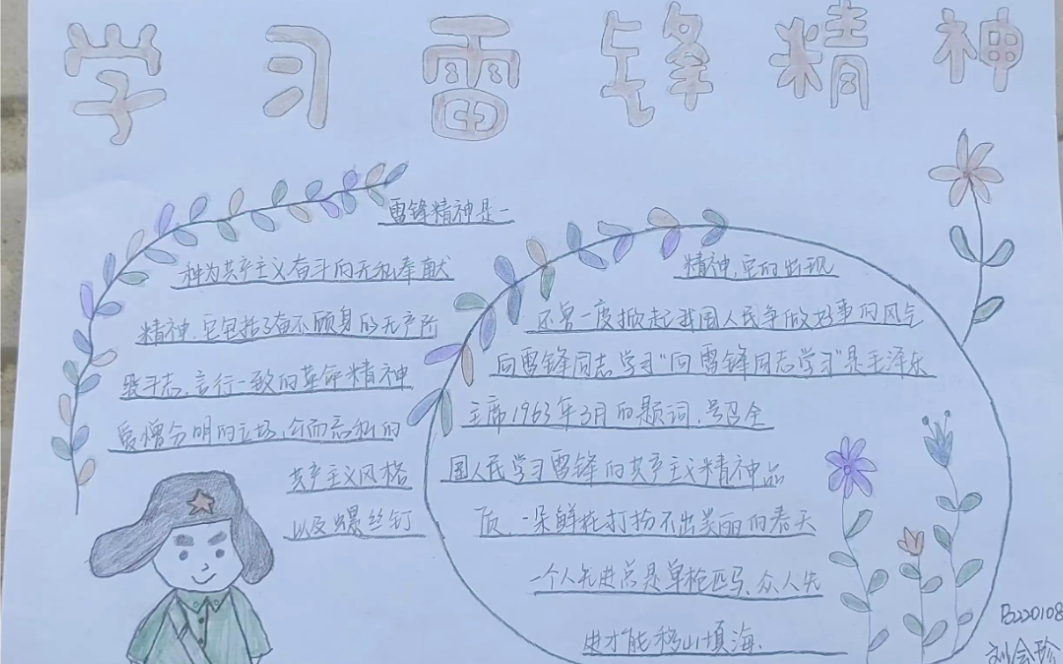 学习雷锋精神
雷锋精神是一
种为共产主义奋斗的无私奉献
精神，它包括了奋不顾身的无产阶
级斗志，言行一致的革命精神
爱憎分明的立场，公而忘私的
共产主义风格
以及螺丝钉
精神，它的出现
还曾一度掀起我国人民争做好事的风气
向雷锋同志学习"向雷锋同志学习"是毛泽东
主席1963年3月的题词，号召全
国人民学习雷锋的共产主义精神品
质，一朵鲜花打扮不出美丽的春天
一个人先进总是单枪匹马，众人先
进才能移山填海．
B220108
刘会珍